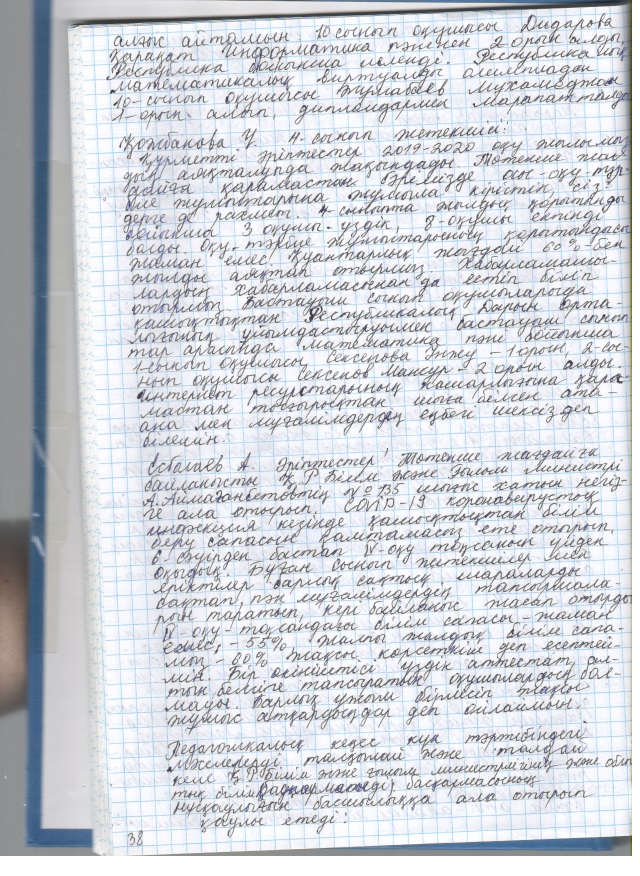 алғыс айтамын. 10 сынып оқушысы Дидарова
Қарақат Информатика пәнінен 2 орын алды,
Республика бойынша иеленді. Республикалық
математикалық виртуалды олимпиадан
10-сынып оқушысы Жумабаев Мухамеджан
1-орын алып, дипломдармен марапатталды
Қожбанова У. 4-сынып жетекшісі:
Құрметті әріптестер 2019-2020 оқу жылымыз-
дың аяқталуыда жақындады. Төтенше жағ-
дайға қарамастан әрқ оқу-тәр-
бие жұмыстарына жұмыла кірістіп, сіз-
дерге де рахмет. 4-сыныпта жылдық қорытынды
бойынша 3 оқушы үздік, 8-оқушы екпінді
болды. Оқу-тәрбие жұмыстарының қорытындысы
жаман емес, қуантарлық жағдай 60%-бен
жылды аяқтап отырмыз. Хабарламашы-
лардың хабарламасынан да естіп біліп
отырмыз. Бастауыш сынып оқушыларыда
қашықтықтан Республикалық Дарын орта-
лығының ұйымдастыруымен бастауыш сынып-
тар арасында математика пәні бойынша
1-сынып оқушысы Сексенова Інжу - 1 орын, 2-сы-
нып оқушысы Сексенов Мансур - 2 орын алды.
Интернет ресурстарының нашарлығына қара-
мастан тығырықтан шыға білген ата-
ана мен мұғалімдердің еңбегі шексіз деп
білемін.
Есбалаев А. Әріптестер! Төтенше жағдайға
байланысты Қ.Р Білім және Ғылым министрі
А.Аймағанбетовтің №135 шығыс хатын негіз-
ге ала отырып. COVID-19 коронаверустық
инфекция кезінде қашықтықтан білім
беру сапасын қамтамасыз ете отырып,
6-сәуірден бастап IV-оқу тоқсанын үйден
оқыдық. Бұған сынып жетекшілер мен
еріктілер сақтық шараларды
сақтап, пән мұғалімдердің тапсырмала-
рын таратып, кері байланыс жасап отырды
IV-оқу-тоқсандағы білім сапасы - жаман
емес, - 55% жалпы жылдық білім сапа-
мыз - 60% жақсы көрсеткіш деп есептей-
мін. Бір өкініштісі үздік аттестат, ал-
тын белгіге тапсыратын оқушылардың бол-
мады. Барлық ұжым бірлесіп жақсы
жұмыс атқардыңдар деп ойлаймын.
Педагогикалық кеңес күн тәртібіндегі
мәселерді талқылай және талдай
келе Қ.Р Білім және ғылым министрлігінің және облыс-
тық білім басқармасының
нұсқаулығын басшылыққа ала отырып
қаулы етеді:
38